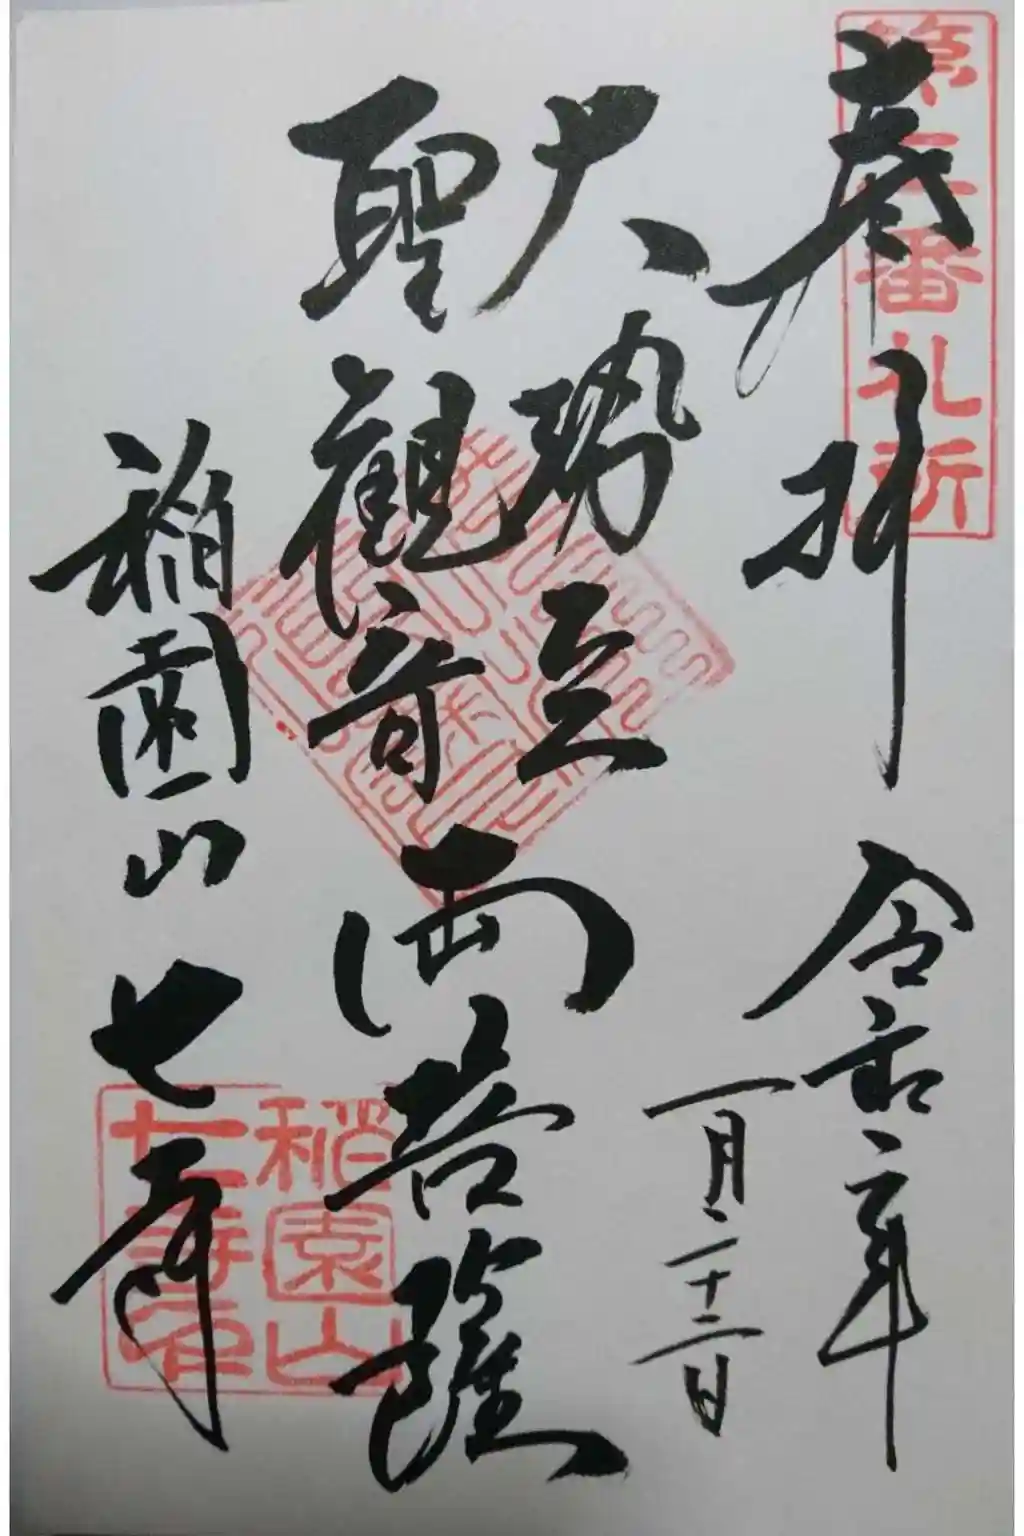 奉拝
令和二年
一月二十二日
大勢至
聖観音
両菩薩
稲園山
七寺
番札所
稲園山
七寺